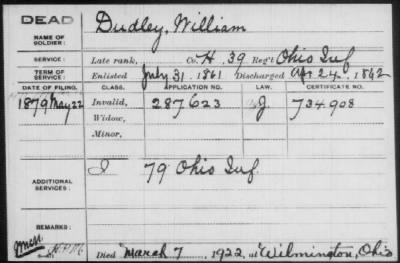 DEAD
NAME OF SOLDIER: Dudley, William
SERVICE: Late rank, Co. H, 39 Reg't Ohio Inf
TERM OF SERVICE: Enlisted July 31, 1861 Discharged Apr. 24, 1862
DATE OF FILING. CLASS. APPLICATION NO. LAW. CERTIFICATE NO.
1879 May 22 Invalid, 287623 J. 734908
Widow,
Minor,
ADDITIONAL SERVICES: I 79 Ohio Inf.
REMARKS:
Died March 7, 1922, at Wilmington, Ohio